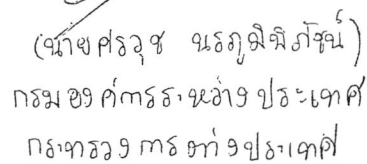 (นายศรวุช นรภูมิพิภัชน์)
กรมองค์การระหว่างประเทศ
กระทรวงการต่างประเทศ